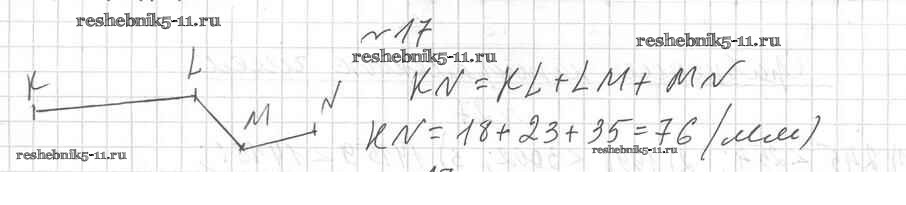 reshebnik5-11.ru
№17
reshebnik5-11.ru
reshebnik5-11.ru
K L M N
KN = KL + LM + MN
KN = 18 + 23 + 35 = 76 (мм)
reshebnik5-11.ru
reshebnik5-11.ru